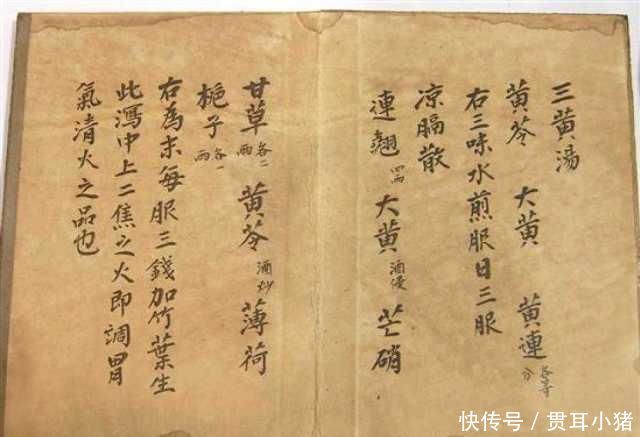 三黄湯
黄芩 大黄 黄連 各等分
右三味水煎服日三服
凉膈散
連翹 四兩 大黄 酒侵 芒硝
甘草 各二兩 黄芩 酒炒 薄荷
梔子 各一兩
右為末每服三錢加竹葉生
此瀉中上二焦之火即調胃
氣清火之品也
快传号/贯耳小猪